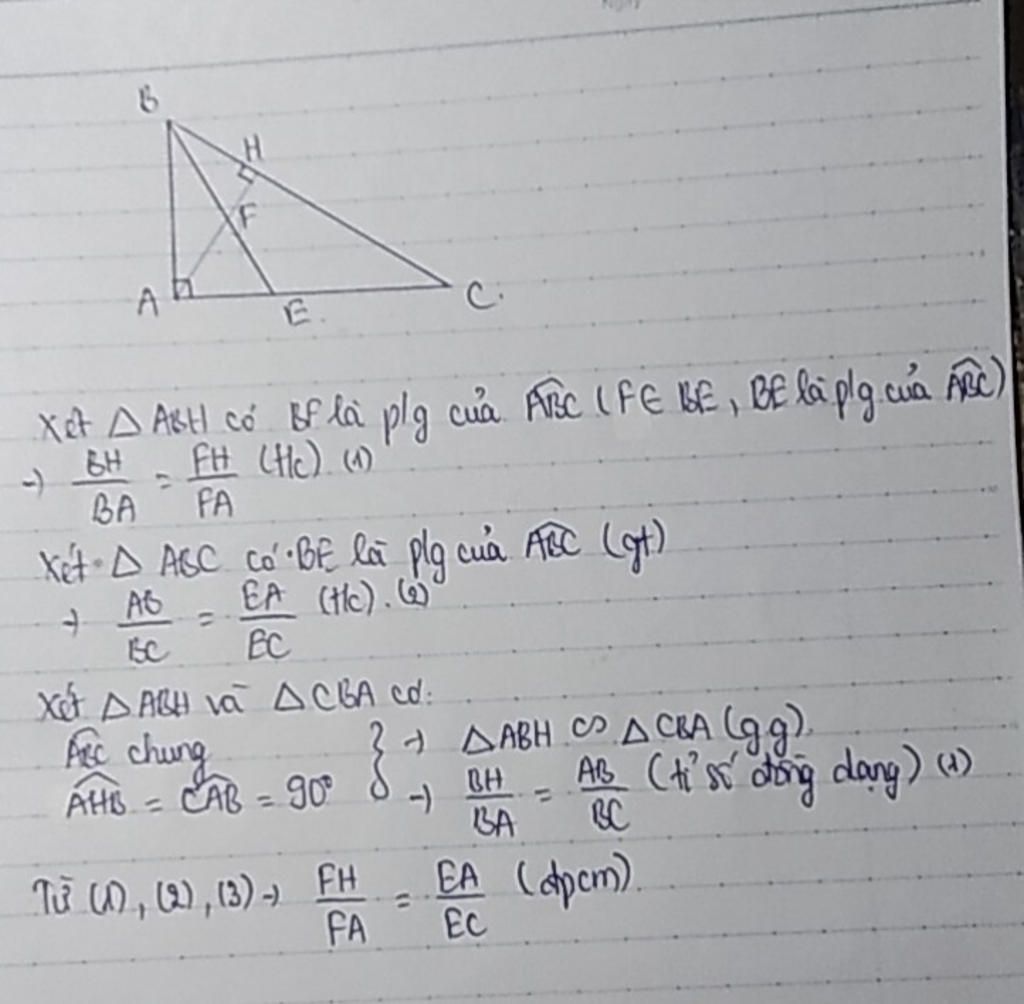 B
H
F
A
E.
C.
Xét △ ABH có BF là p/g của ABC (F∈ BE, BE là p/g của ABC)
→ BH/BA = FH/FA (t/c) (1)
Xét △ ABC có BE là p/g của ABC (gt)
→ AB/BC = EA/EC (t/c). (2)
Xét △ABH và △CBA có:
ABC chung } → △ABH ∽ △CBA (gg).
AHB = CAB = 90° → BH/BA = AB/BC (tỉ số đồng dạng) (1)
Từ (1), (2), (3) → FH/FA = EA/EC (đpcm).